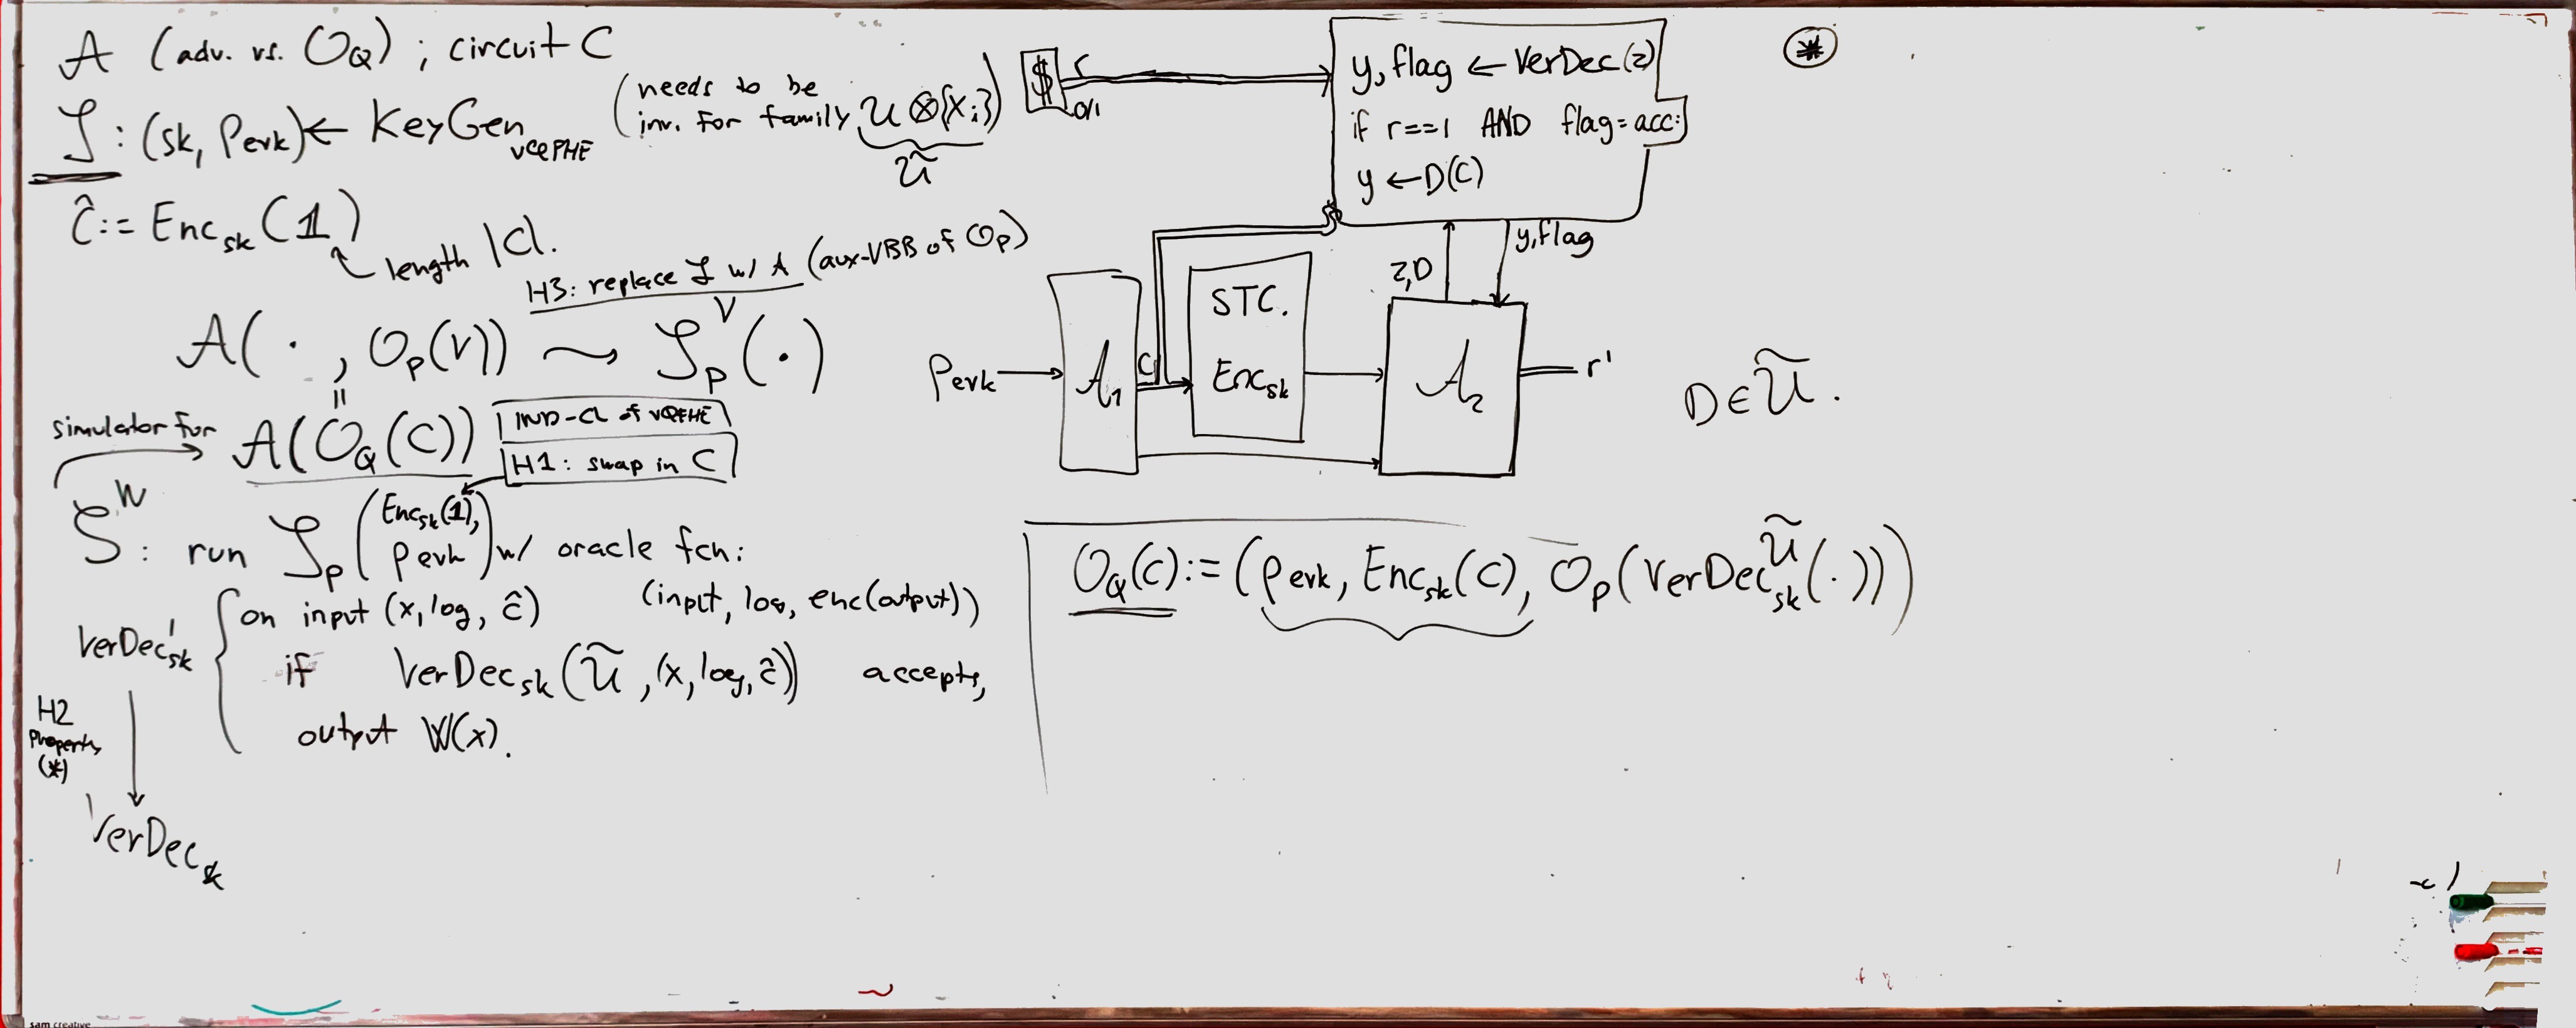 A (adv. vs. O_Q) ; circuit C
S : (sk, ρ_evk) ← KeyGen_vQFHE (needs to be inv. for family U ⊗ {X_i})
Ũ
Ĉ := Enc_sk(1)
length |C|.
H3: replace S w/ A (aux-VBB of O_P)
A( · , O_P(V)) ⤳ S_P^V( · )
||
simulator for
A(O_Q(C))
IND-CL of vQFHE
H1: swap in C
S^W : run S_P(Enc_sk(1), ρ_evk) w/ oracle fcn:
on input (x, log, ĉ) (input, log, enc(output))
VerDec'_sk
if VerDec_sk(Ũ, (x, log, ĉ)) accepts,
output W(x).
H2
property
(*)
VerDec_sk
$ r
0/1
y, flag ← VerDec(z)
if r==1 AND flag=acc:
y ← D(C)
*
z, D
y, flag
ρ_evk
A_1
C
STC.
Enc_sk
A_2
r'
D ∈ Ũ .
O_Q(C) := (ρ_evk, Enc_sk(C), O_P(VerDec_sk^Ũ( · )))
sam creative